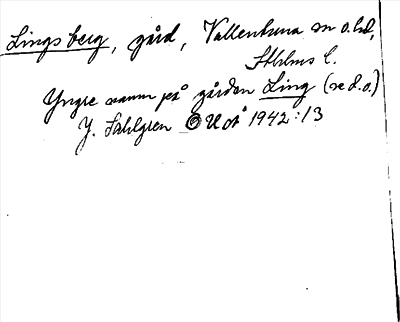 Lingsberg, gård, Vallentuna sn o. hd,
Sthlms l.
Yngre namn på gården Ling (se d.o.)
J. Sahlgren OUoÅ 1942:13